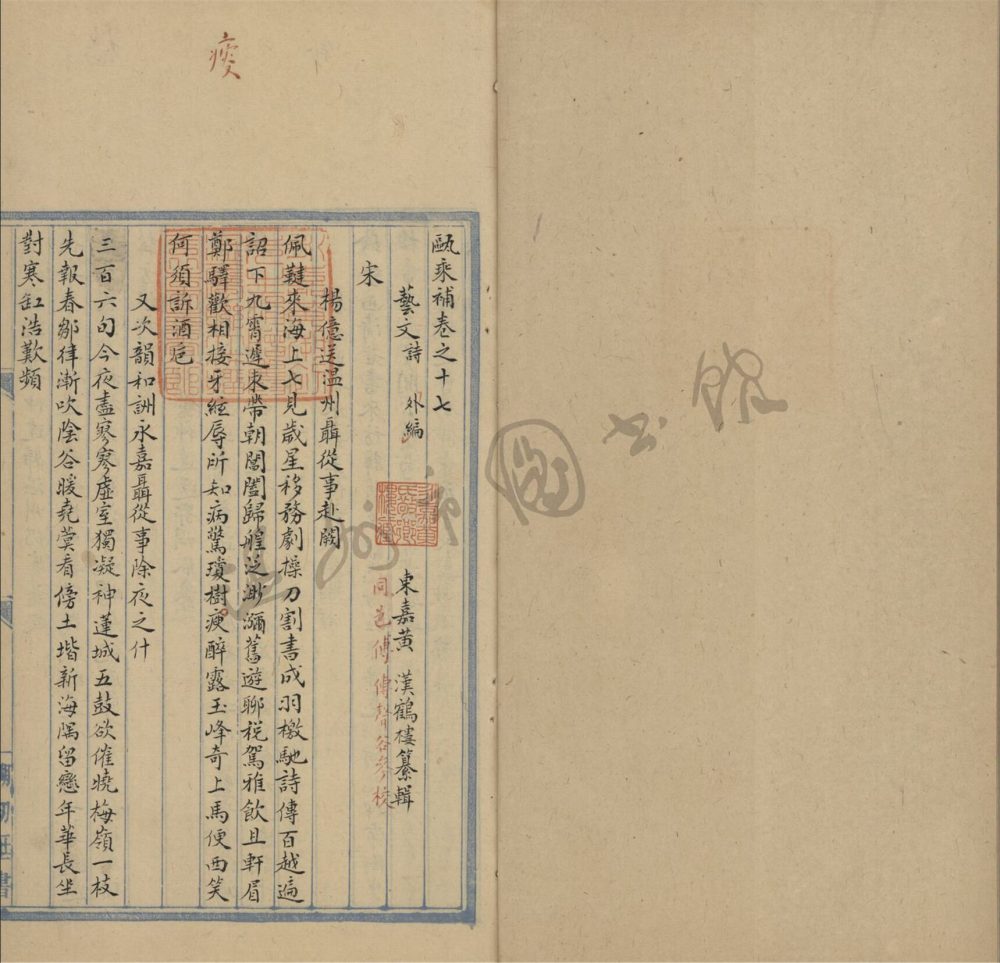 甌乘補卷之十七
藝文詩 外編
東嘉黃 漢鶴樓纂輯
同邑傅 傳聲谷參校
宋
楊億送温州聶從事赴闕
佩韃來海上七見歲星移務劇操刀割書成羽檄馳詩傳百越遍
詔下九霄遲束帶朝閶闔歸艎泛渺瀰舊遊聊税駕雅飲且軒眉
鄭驛歡相接牙絃辱所知病驚瓊樹瘦醉露玉峰奇上馬便西笑
何須訴酒卮
又次韻和詶永嘉聶從事除夜之什
三百六旬今夜盡寥寥虛室獨凝神蓮城五鼓欲催曉梅嶺一枝
先報春鄒律漸吹陰谷暖堯蓂看傍土堦新海隅留戀年華長坐
對寒缸浩歎頻
瘦
圖書館